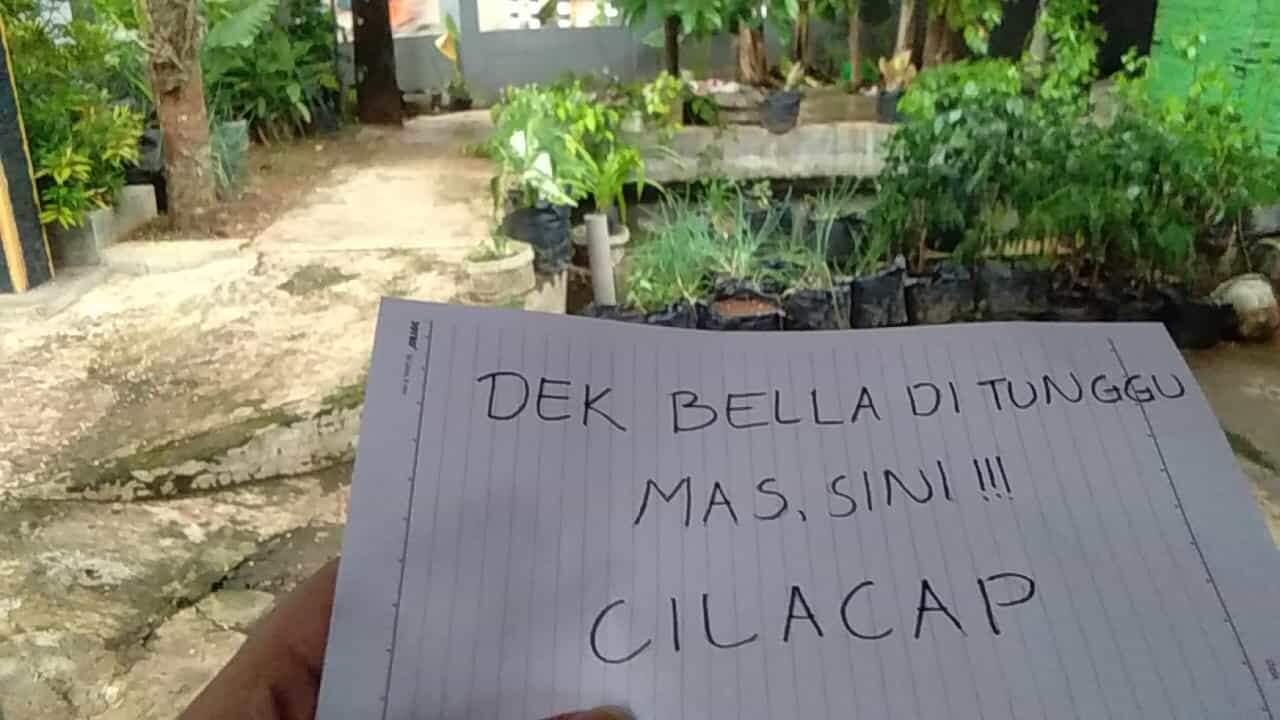 DEK BELLA DI TUNGGU
MAS, SINI !!!
CILACAP